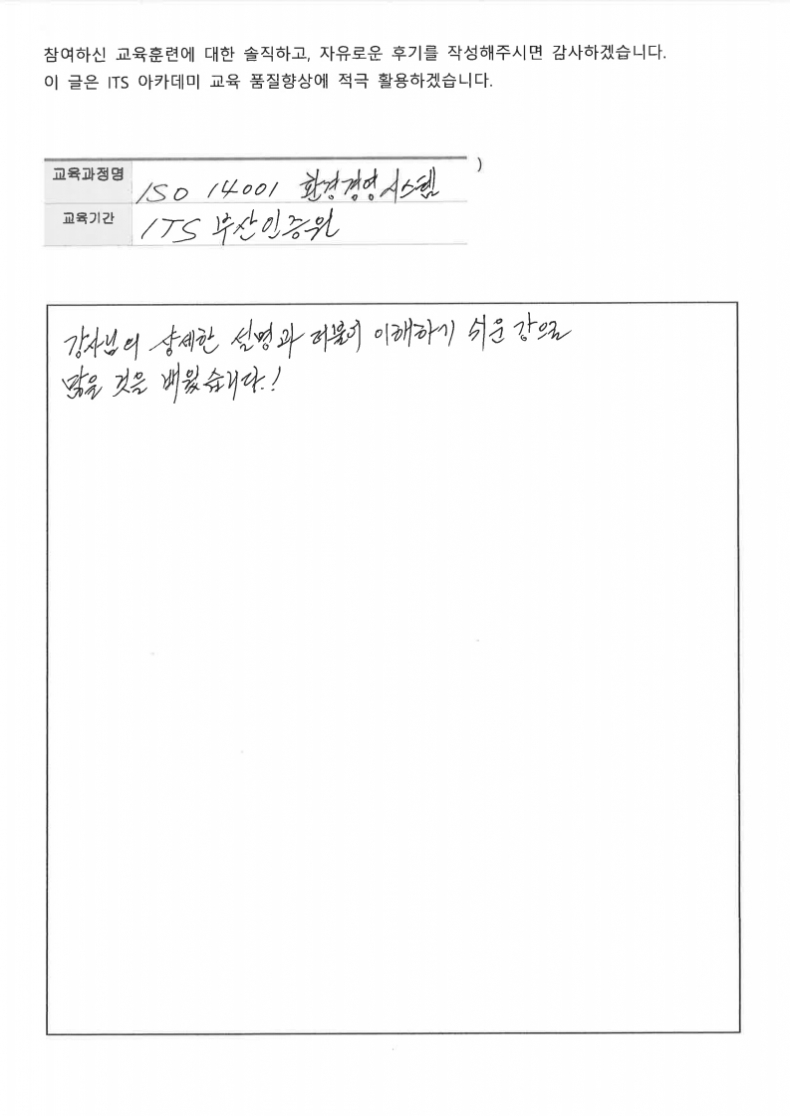 참여하신 교육훈련에 대한 솔직하고, 자유로운 후기를 작성해주시면 감사하겠습니다.
이 글은 ITS 아카데미 교육 품질향상에 적극 활용하겠습니다.
)
교육과정명 ISO 14001 환경경영시스템
교육기간 ITS 부산인증원
강사님의 상세한 설명과 더불어 이해하기 쉬운 강으로
많을 것을 배웠습니다.!